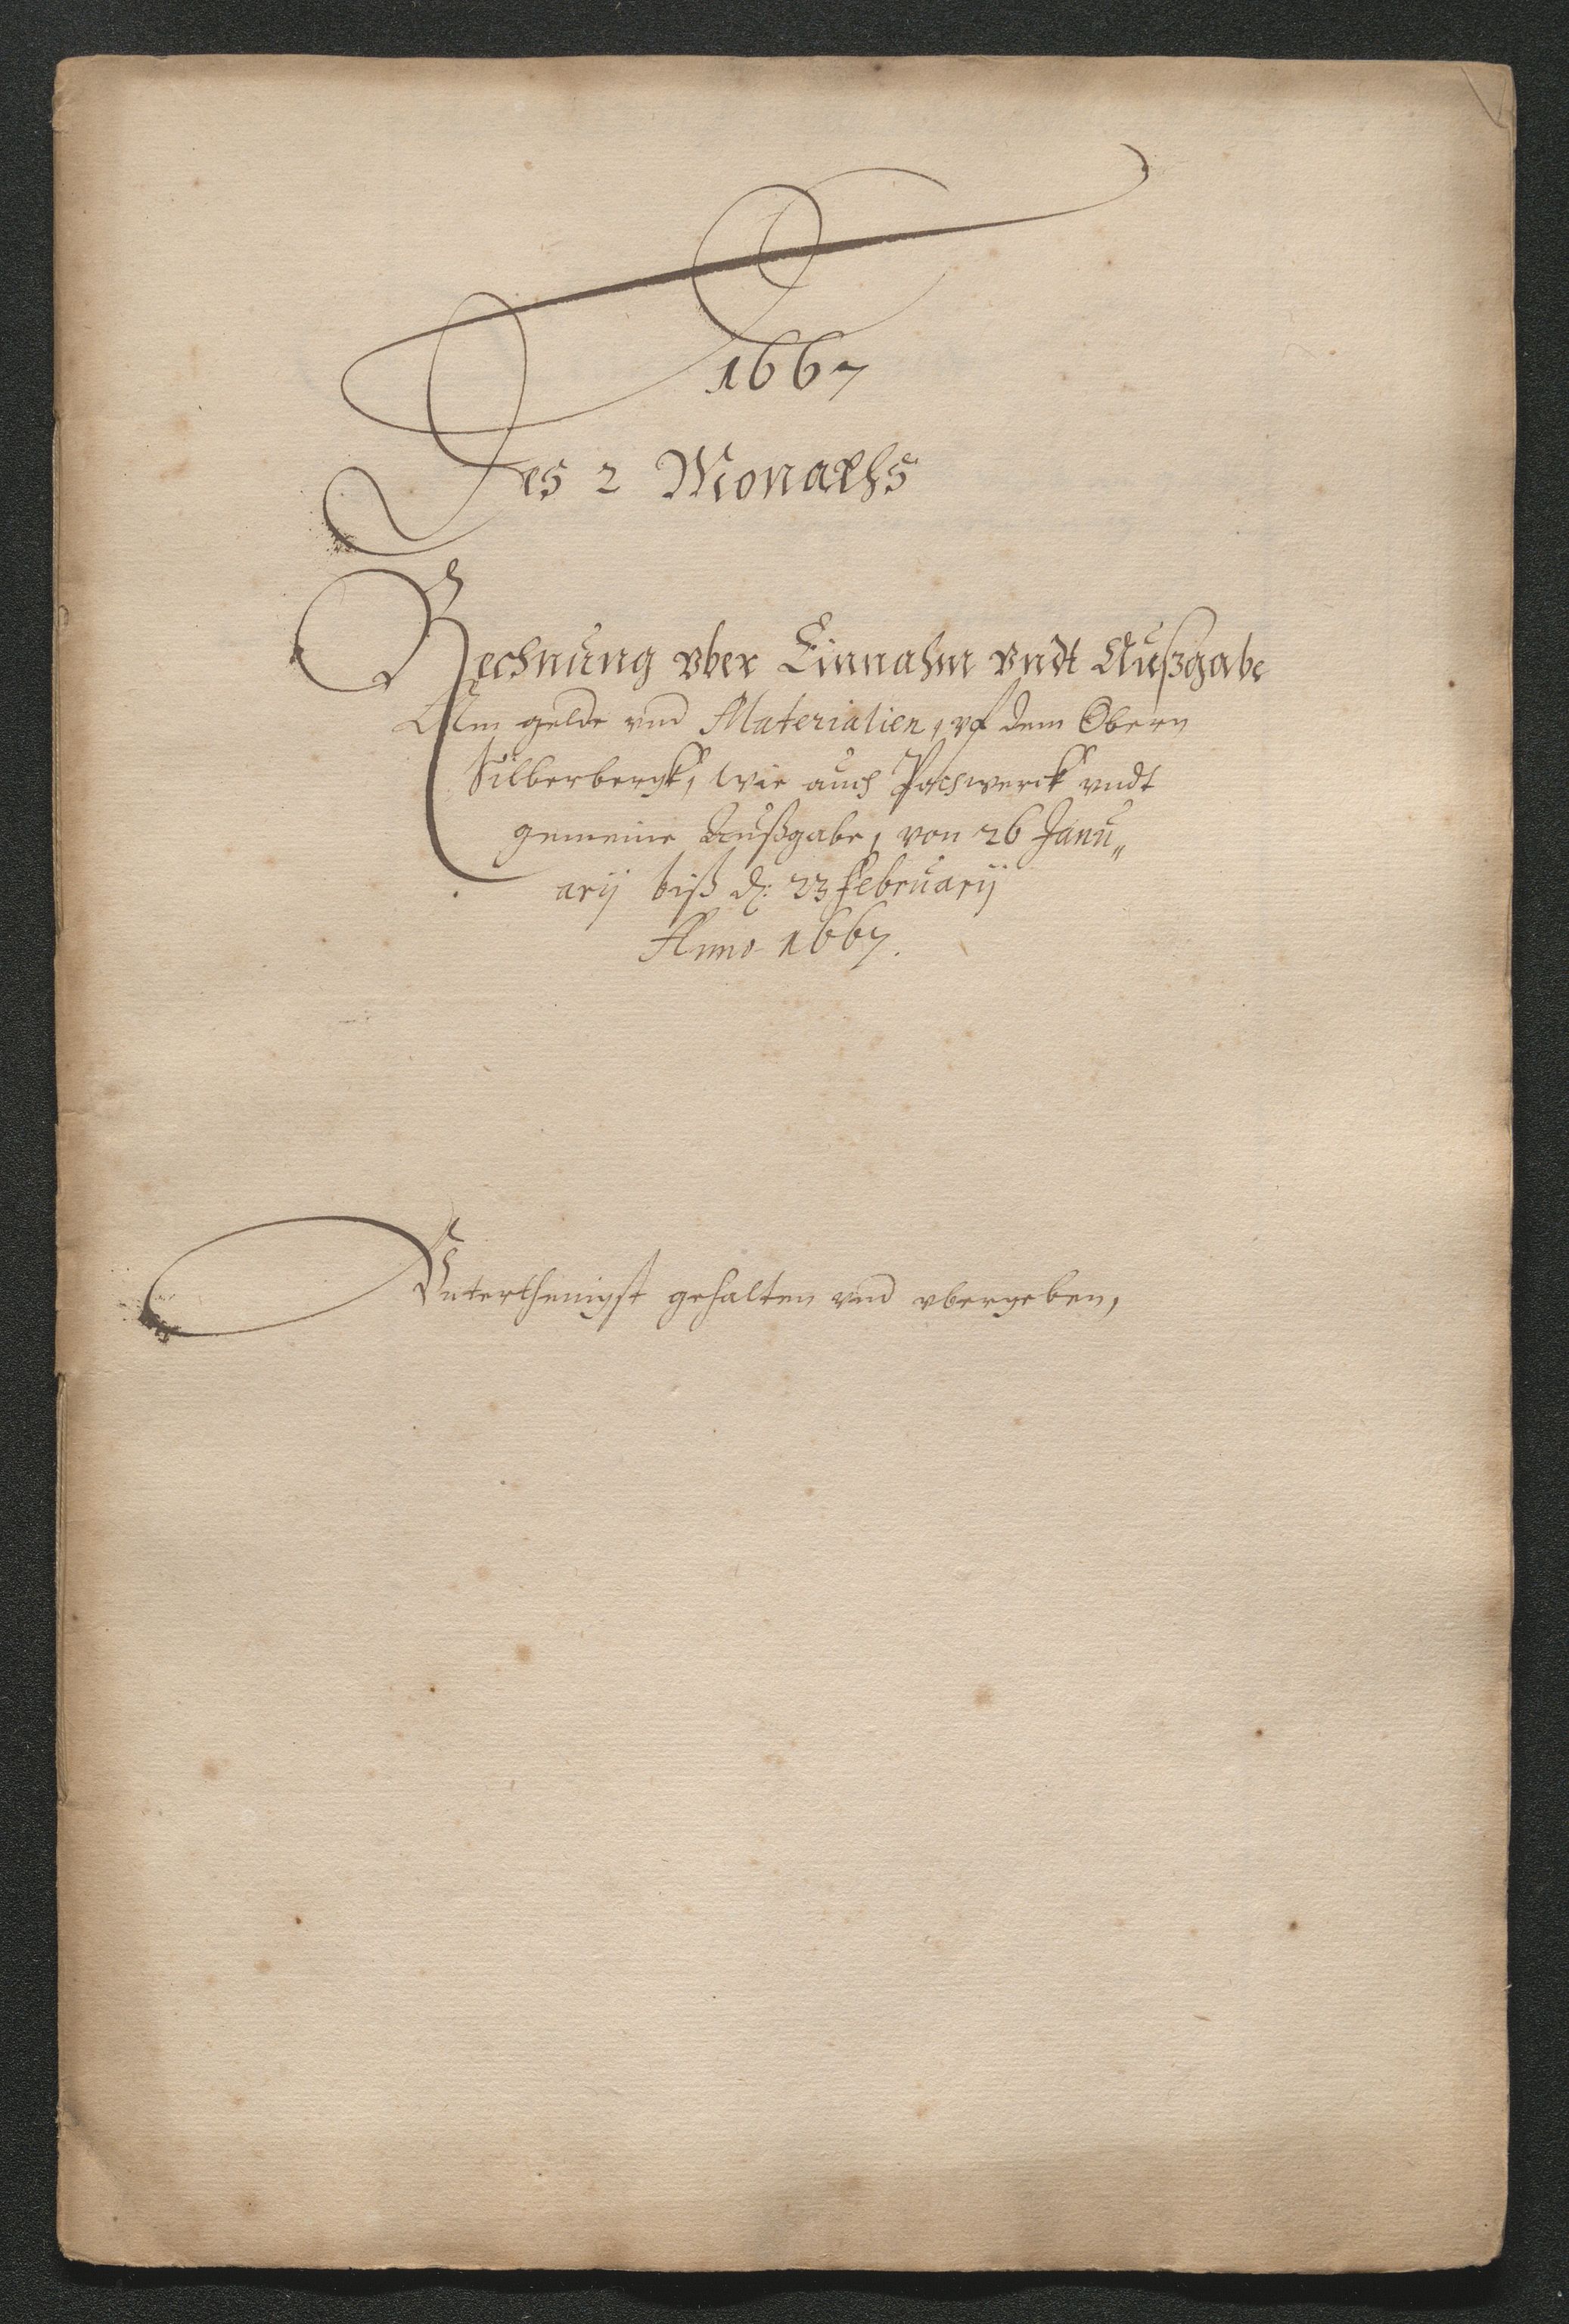 1667
Des 2 Monaths
Rechnung vber Einnahm vndt Außgabe
Am gelde vnd Materialien, vf dem Obern
Silberbergk, wie auch Pochwerck vndt
gemeine Außgabe, von 26 Janu„
arij biß d: 23 Februarij
Anno 1667.
Vnterthenigst gehalten vnd vbergeben,